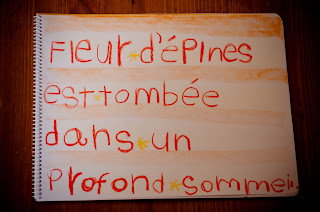 Fleur d'épines
est tombée
dans un
profond sommeil.